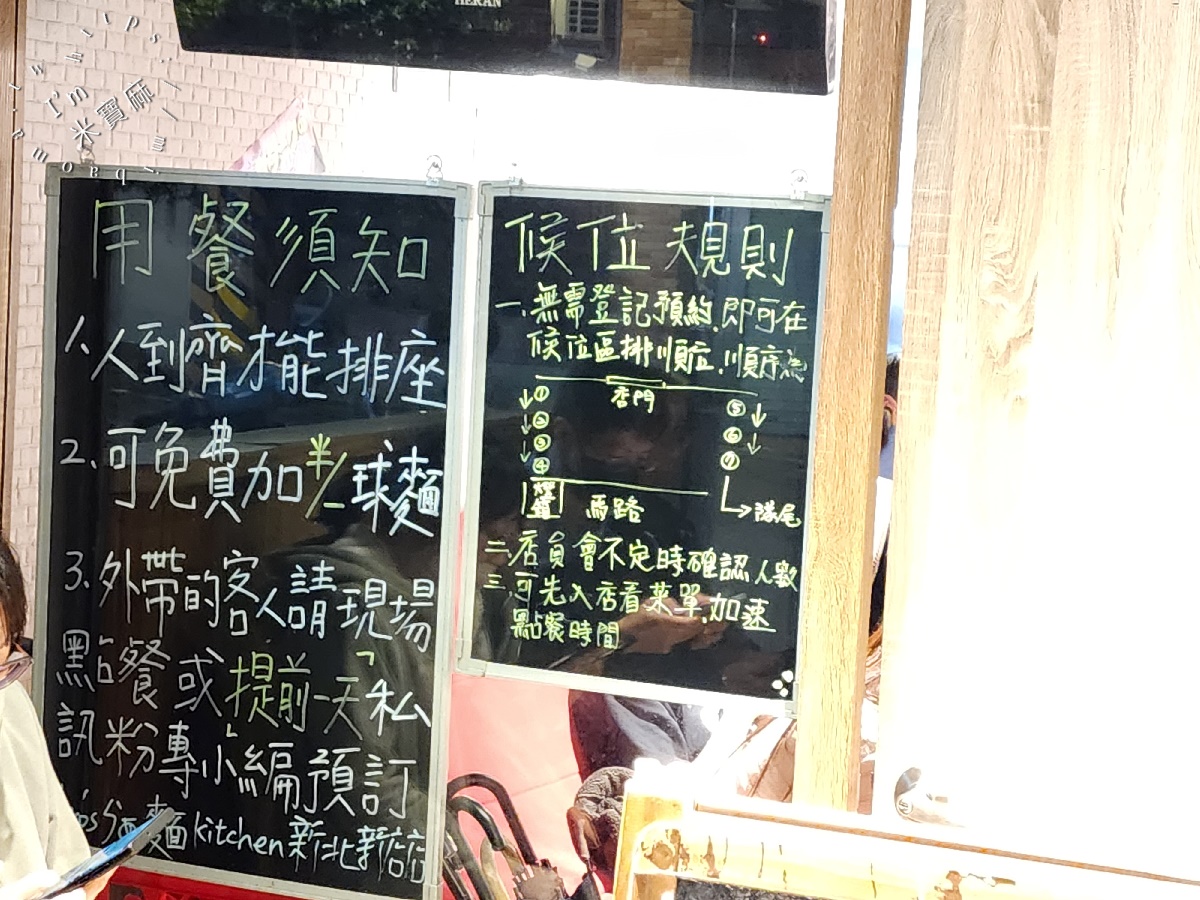 HERAN
I'm
米寶麻
用餐須知
1.人到齊才能排座
2.可免費加半/1球麵
3.外帶的客人請現場
點餐或提前一天「私
訊粉專小編預訂
麵kitchen新北新店店
候位規則
一.無需登記預約.即可在
候位區排順位.順序為
店門
① ⑤
② ⑥
③ ⑦
④
馬路
隊尾
二.店員會不定時確認人數
三.可先入店看菜單.加速
點餐時間